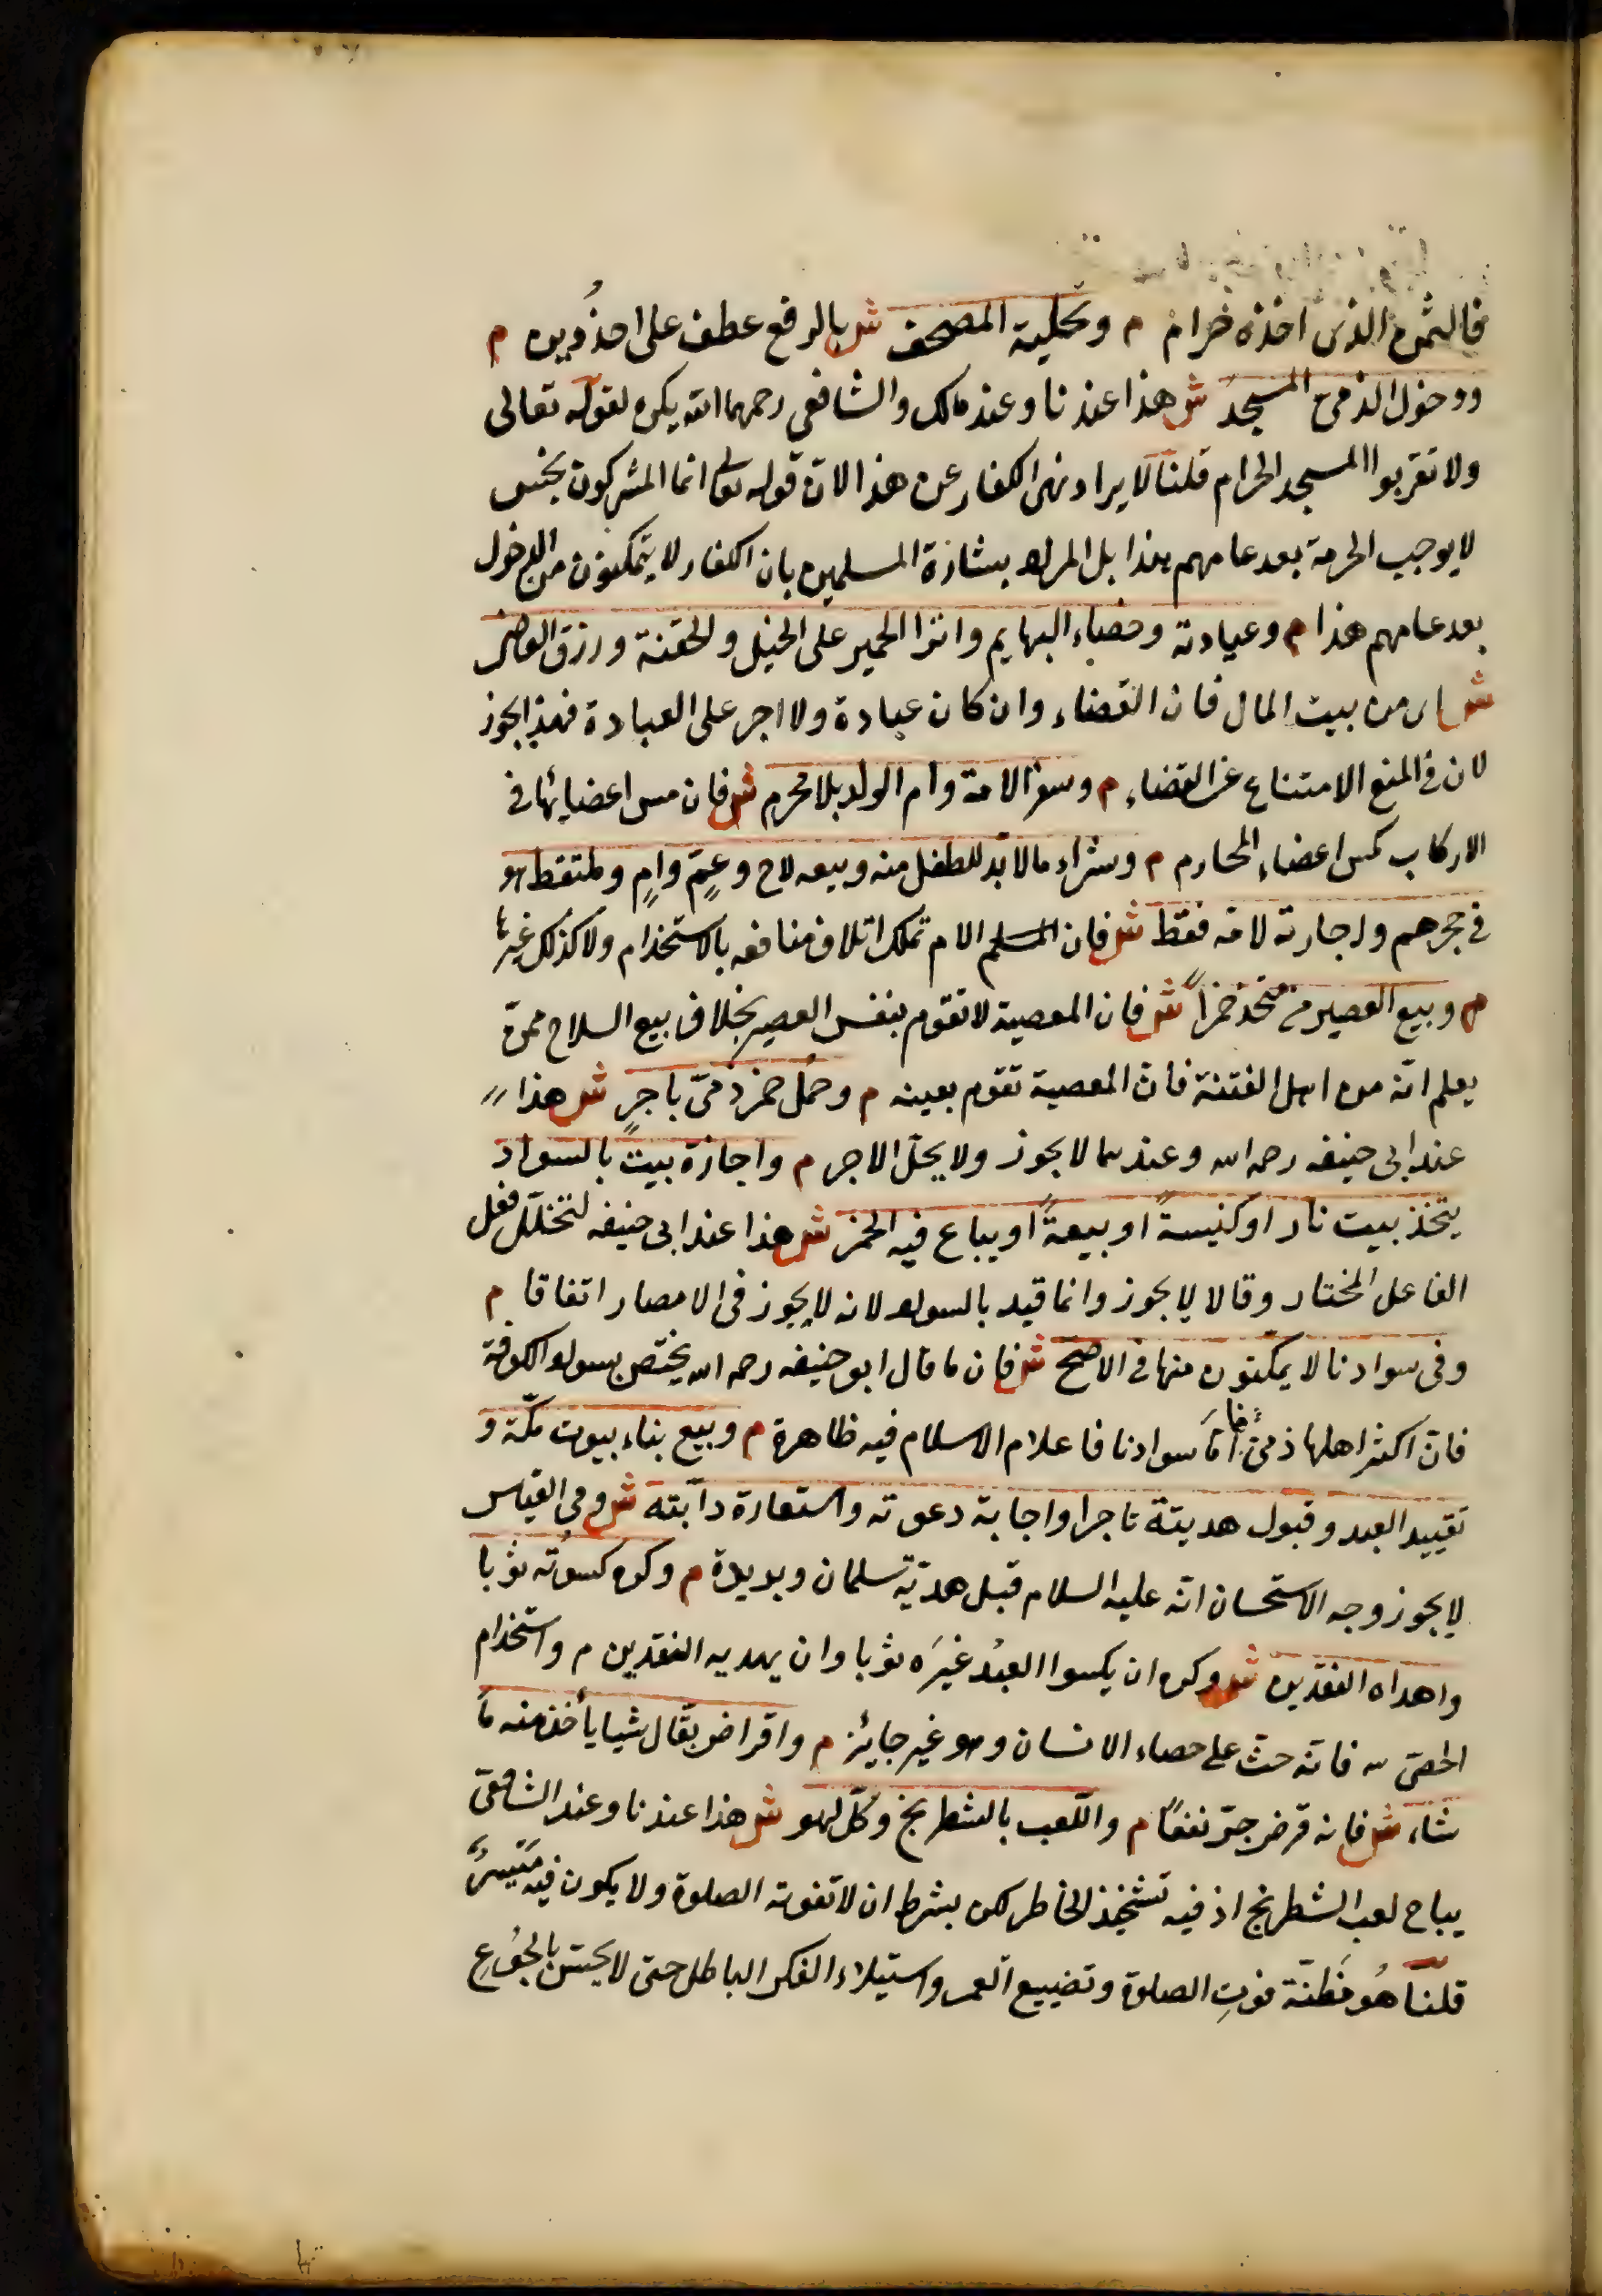 فالثمن الذى اخذه حرام م وتحلية المصحف ش بالرفع عطف على اخذ دين م
ودخول الذمى المسجد ش هذا عندنا وعند مالك والشافعى رحمهما الله يكره لقوله تعالى
ولا تقربوا المسجد الحرام قلنا لا يراد نهى الكفار عن هذا لان قوله تعالى انما المشركون نجس
لا يوجب الحرمة بعد عامهم هذا بل المراد بشارة المسلمين بان الكفار لا يتمكنون من الدخول
بعد عامهم هذا م وعيادته وخصاء البهايم وانزا الحمير على الخيل والحقنة ورزق القاضى
ش اى من بيت المال فان القضاء وان كان عبادة ولا اجر على العبادة فهذا يجوز
لان فى المنع الامتناع عن القضاء م وسفر الامة وام الولد بلا محرم ش فان مس اعضائها فى
الاركاب كمس اعضاء المحارم م وشراء ما لا بد للطفل منه وبيعه لاخ وعمٍّ وامٍ وملتقط هو
فى حجرهم واجارته لامه فقط ش فان الام تملك اتلاف منافعه بالاستخدام ولا كذلك غيرها
م وبيع العصير من متخذه خمراً ش فان المعصية لا تقوم بنفس العصير بخلاف بيع السلاح ممن
يعلم انّه من اهل الفتنة فان المعصية تقوم بعينه م وحمل خمر ذمىّ باجرٍ ش هذا
عند ابى حنيفه رحمه الله وعندهما لا يجوز ولا يحلّ الاجر م واجارة بيت بالسواد
يتخذ بيت نار او كنيسةً او بيعةً او يباع فيه الخمر ش هذا عند ابى حنيفه لتخلّل فعل
الفاعل المختار وقالا لا يجوز وانما قيد بالسواد لانه لا يجوز فى الامصار اتفاقا م
وفى سوادنا لا يمكنون منها فى الاصح ش فان ما قال ابو حنيفه رحمه الله يختص بسواد الكوفة
فانّ اكثر اهلها ذمىّ فامّا سوادنا فاعلام الاسلام فيه ظاهرة م وبيع بناء بيوت مكّة و
تقييد العبد وقبول هديتة تاجرا واجابة دعوته واستعارة دآبته ش وفى القياس
لا يجوز وجه الاستحسان انّه عليه السلام قبل هديّة سلمان وبريرة م وكره كسوته ثوبا
واهداه النقدين ش وكره ان يكسوا العبدُ غيرَه ثوبا وان يهديه النقدين م واستخدام
الخصىّ ش فانّه حثّ على خصاء الانسان وهو غير جايئز م واقراض بقّال شيا يأخذ منه ما
شاء ش فانه قرض جرّ نفعًا م واللّعب بالشطرنج وكلّ لهو ش هذا عندنا وعند الشافعىّ
يباح لعب الشطرنج اذ فيه تشحيذ الخاطر لكن بشرط ان لا تفوته الصلوة ولا يكون فيه مَيسِرٌ
قلنا هُو مَظِنّة فوتِ الصلوة وتضييع العمر واستيلاء الفكر الباطل حتى لا يحسّ بالجُوعِ